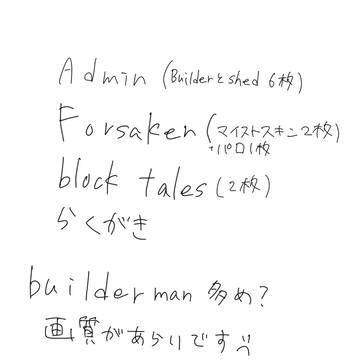 Admin (Builderとshed 6枚)
Forsaken (マイストスキン2枚)
+パロ1枚
block tales (2枚)
らくがき
builderman 多め?
画質があらいです:(